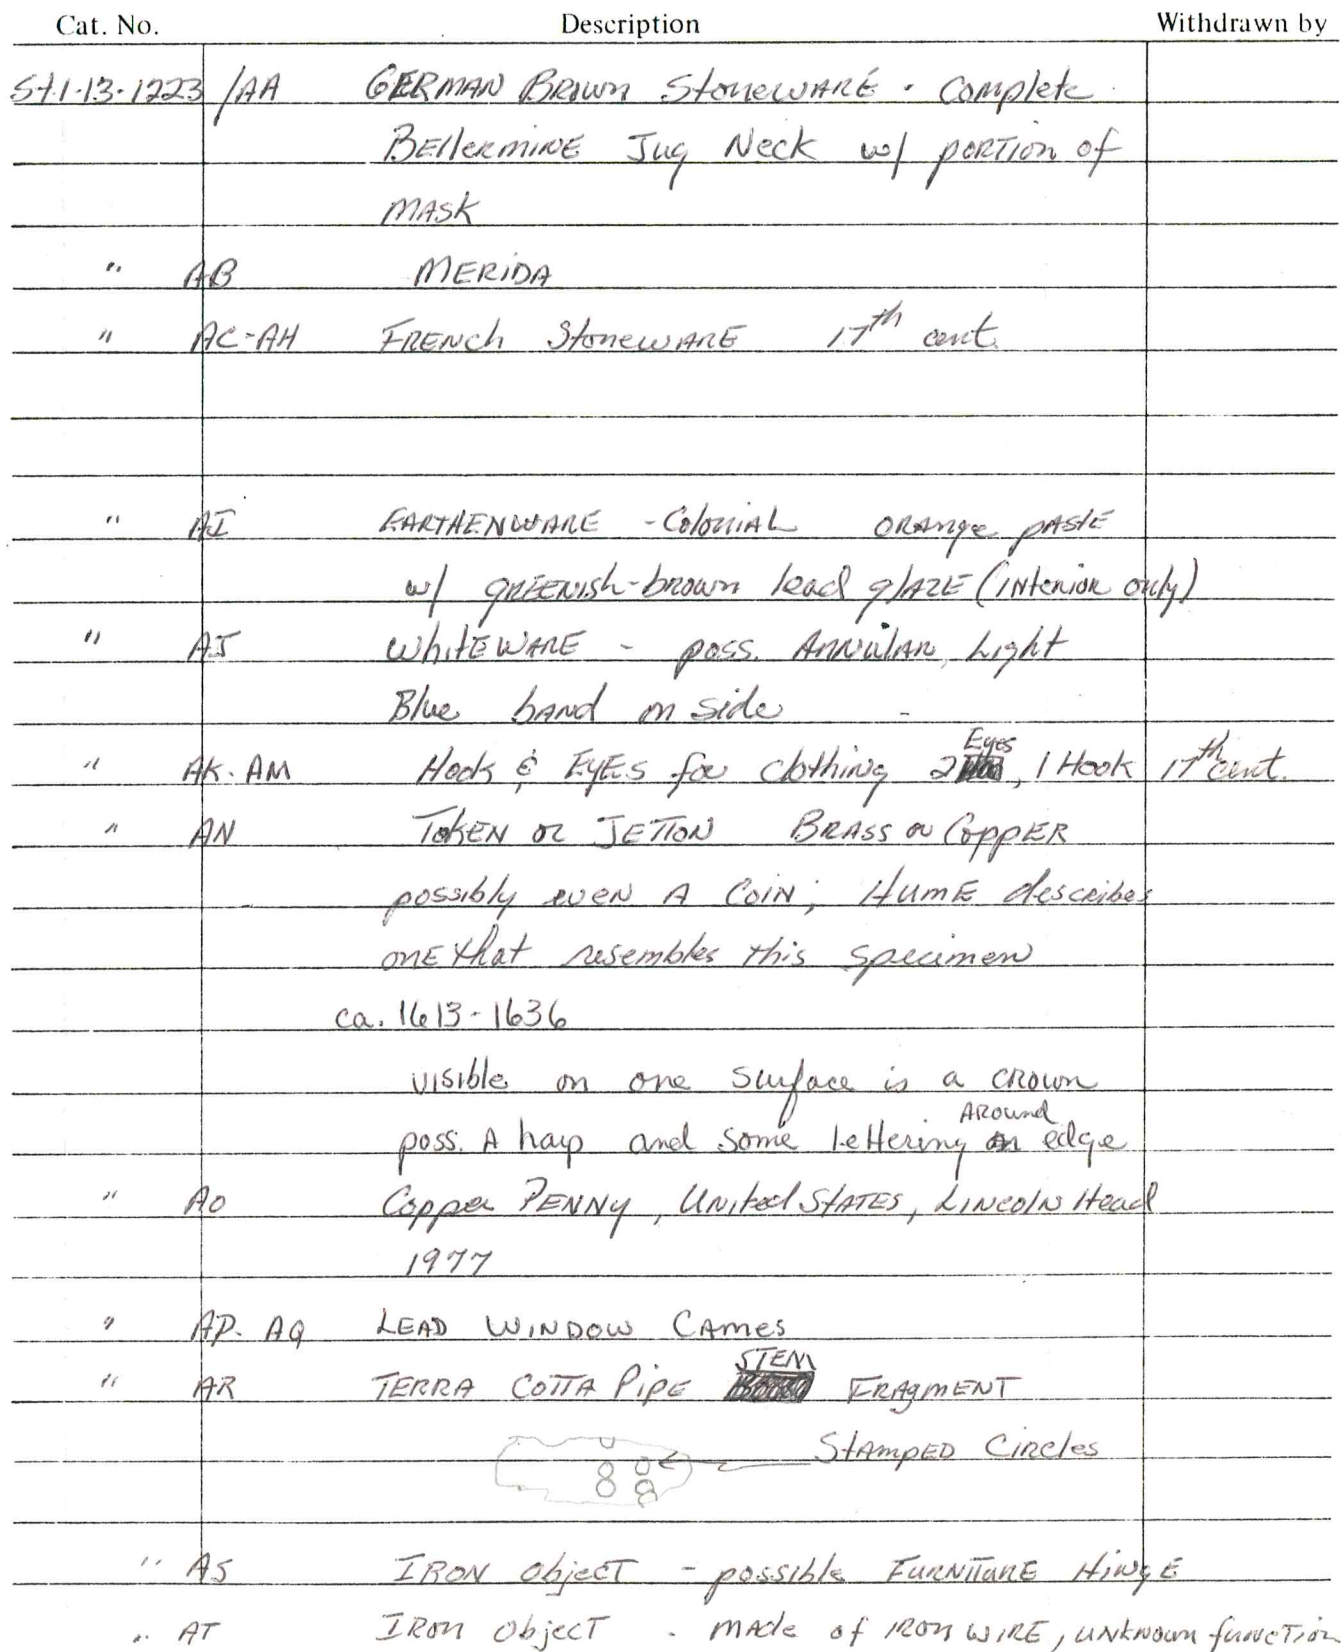 Cat. No. Description Withdrawn by
St.1-13-1223 /AA GERMAN BROWN StonEWARE - Complete
BEllermiNE Jug Neck w/ poRTion of
MASK
" AB MERIDA
" AC-AH FRENch StoneWARE 17th cent.
" AI EARTHENWARE - Colonial ORAnge pASTE
w/ gREENish-brown lead glAZE (INterior only)
" AJ WhitEWARE - poss. ANNulAR, Light
Blue bAND on side
" AK-AM Hook & EyEs for clothing 2 Eyes, 1 Hook 17th cent.
" AN TokEN or JETTON BRASS or CoppER
possibly even A CoiN; HumE describes
onE that resembles this specimen
ca. 1613-1636
visible on one surface is a cRown
poss. A harp and some lettering ARound edge
" AO Copper PENNy, United StATES, LiNcolN Head
1977
" AP-AQ LEAD WINDOW CAmes
" AR TERRA COTTA PipE STEM FRAgmENT
StAmpED CiRcles
" AS IRON objecT - possible FURNiTURE HiNgE
" AT IRon objecT - mAde of iRon wiRE, uNkNowN fuNcTioN